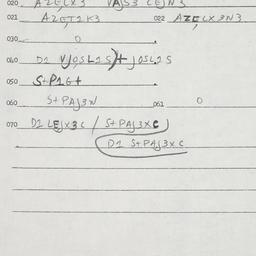 020 AZELX3 VAJS3 CEJN3
021 AZET1K3 022 AZELX3N3
030 0
040 D1 VJOSL1S + JOSL1S
050 S+P16+
060 S+PAJ3N 061 0
070 D1 LEJX3C / S+PAJ3XC
D1 S+PAJ3XC